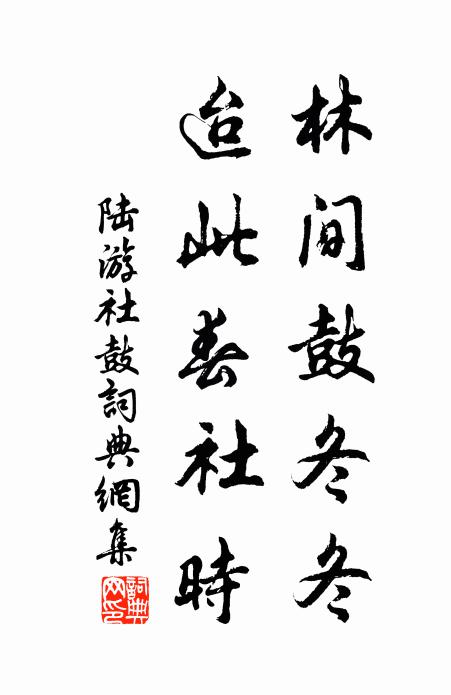 林间鼓冬冬
迨此春社時
陆游社鼓詞典網集
詞典
网印